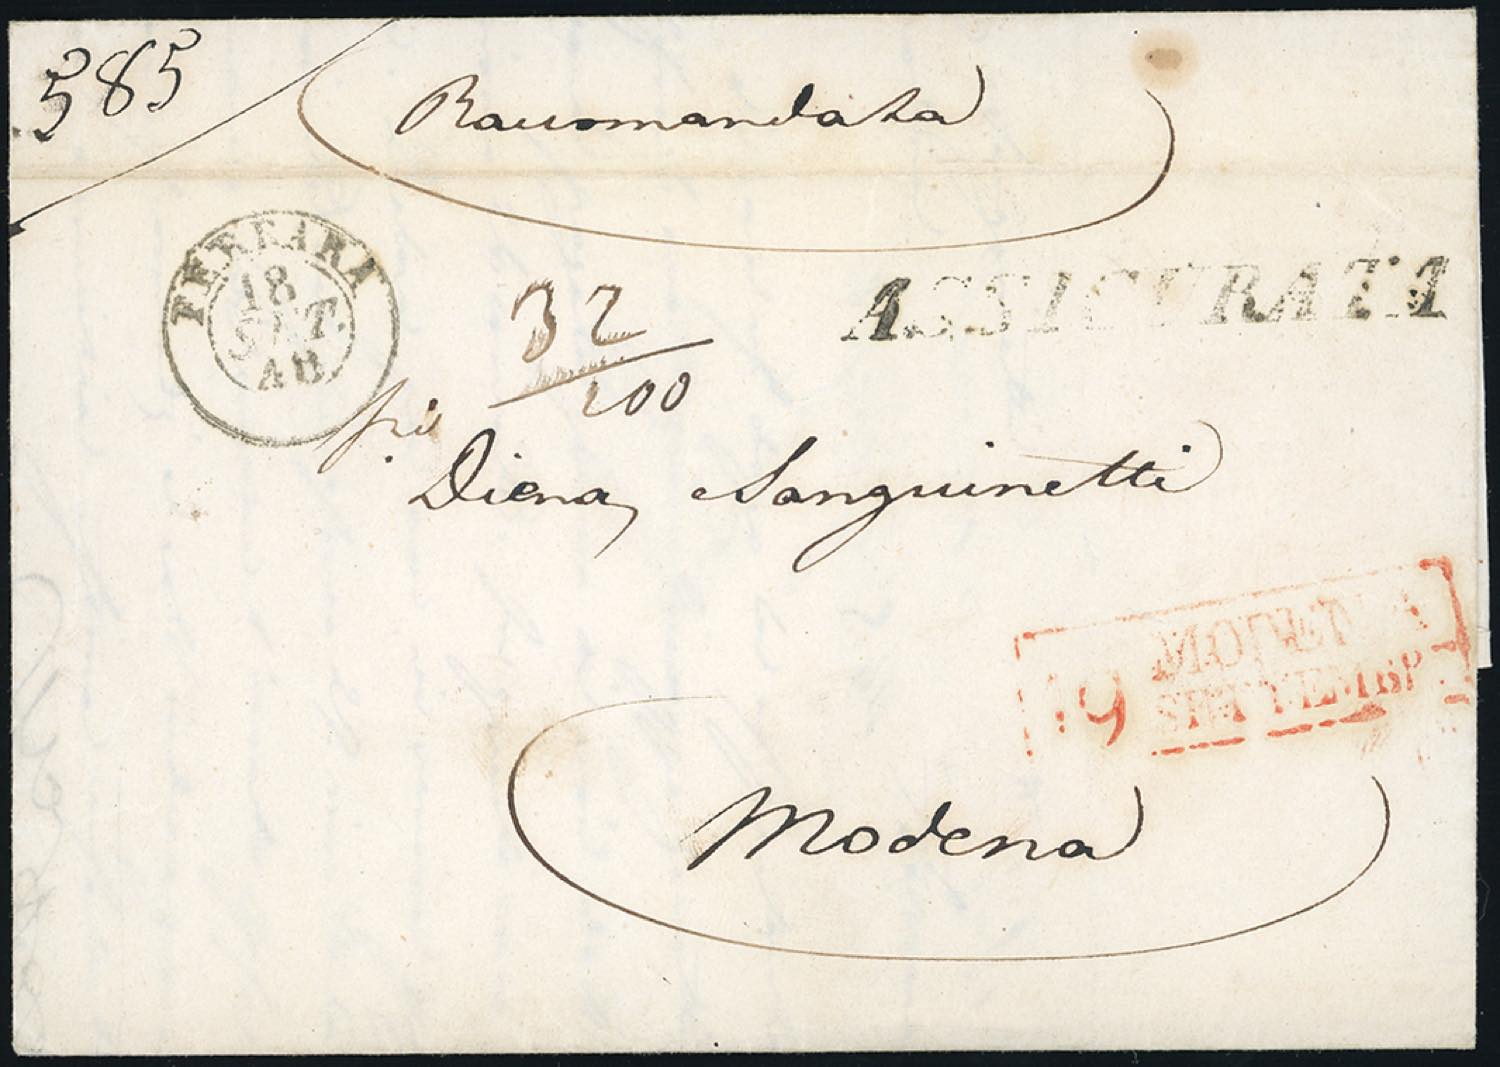 585
Raccomandata
FERRARA
18
SET.
48
32
100
ASSICURATA
Diena, Sanguinetti
MODENA
19 SETTEMBR
Modena